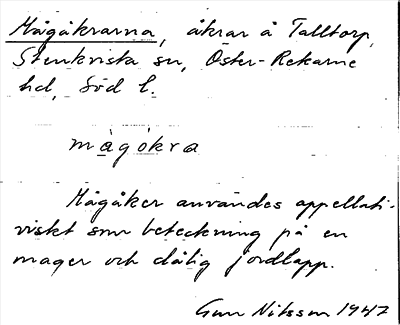 Mågåkrarna, åkrar å Talltorp,
Stenkvista sn, Öster-Rekarne
hd, Söd l.
mågókra
Mågåker användes appellati-
viskt som beteckning på en
mager och dålig jordlapp.
Gun Nilsson 1947